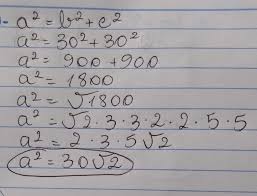 a² = b² + c²
a² = 30² + 30²
a² = 900 + 900
a² = 1800
a² = √1800
a² = √2·3·3·2·2·5·5
a² = 2·3·5√2
a² = 30√2